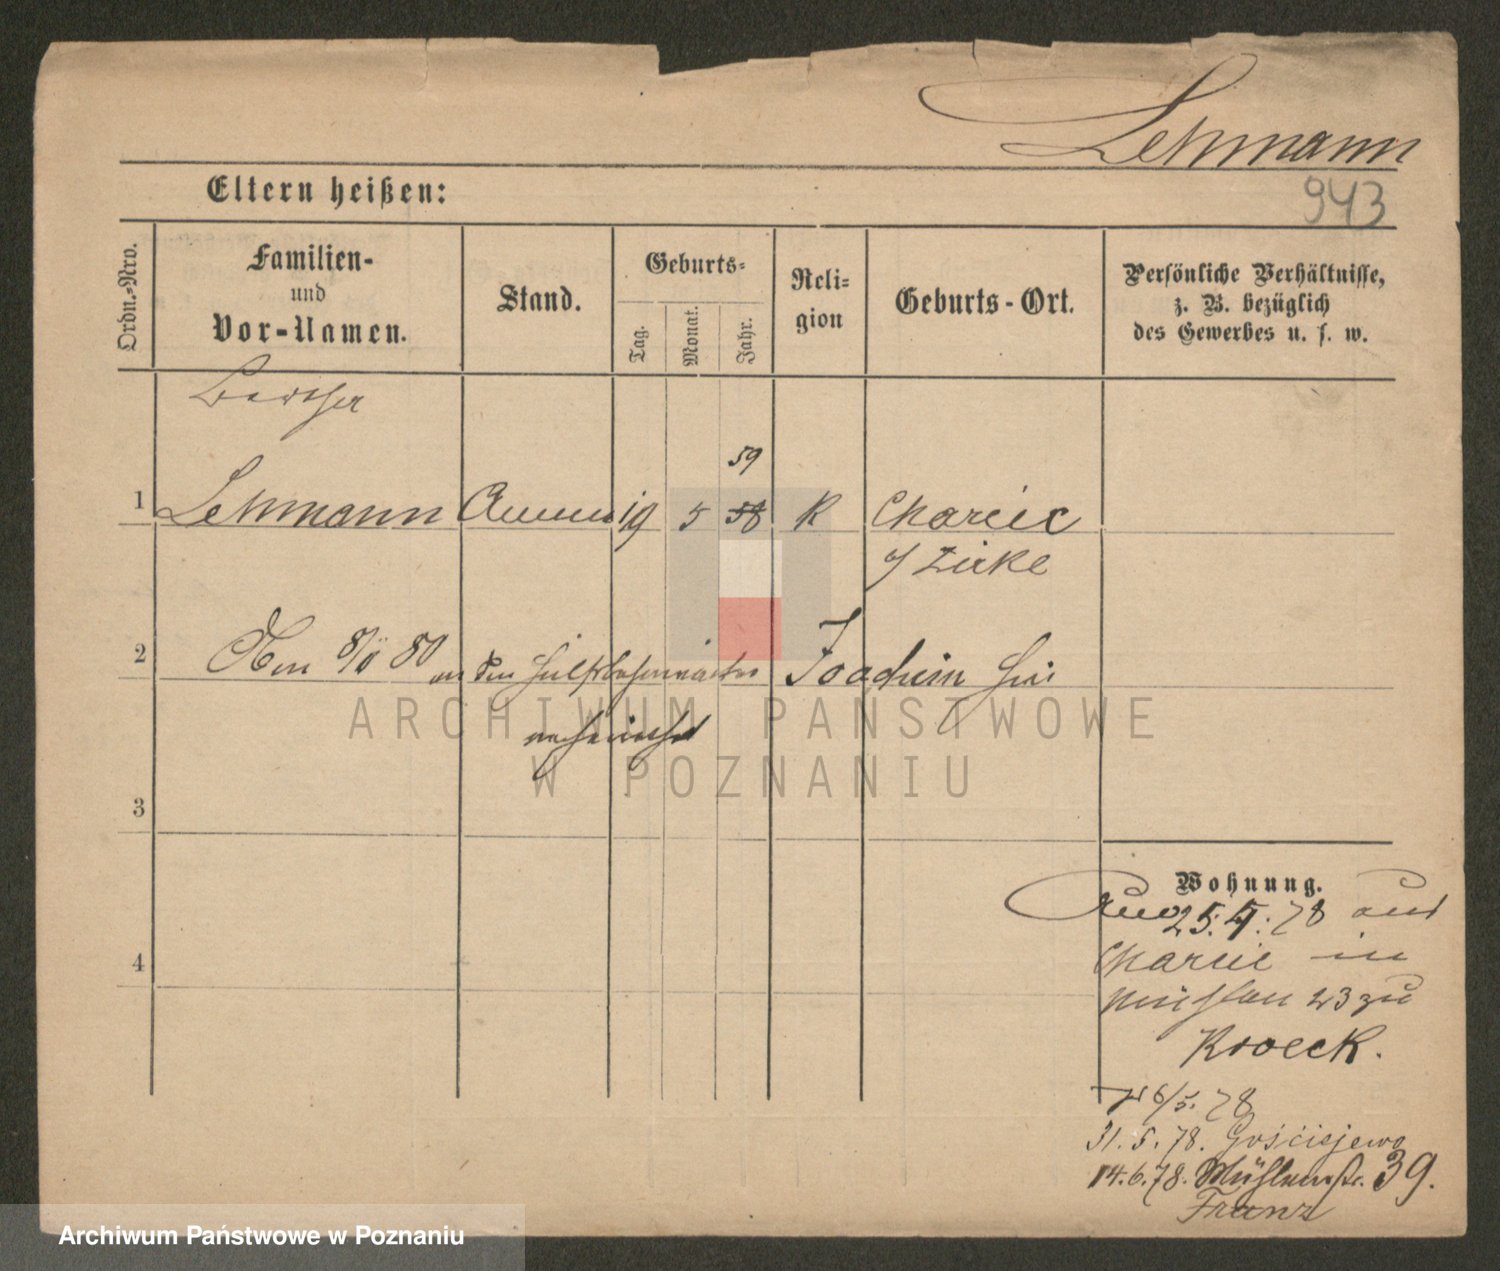 Lehmann
943
Eltern heißen:
Ordn.-Nro.
Familien-
und
Vor-Namen.
Stand.
Geburts-
Tag.
Monat.
Jahr.
Reli-
gion
Geburts-Ort.
Persönliche Verhältnisse,
z. B. bezüglich
des Gewerbes u. s. w.
59
1 Lehmann 19 5 58 K Charcic
/ Zirke
2 Am 80 an den Joachim
verheirathet
3
4
Wohnung.
25. 78 aus
Charcic in
23 zu
Kroeck.
6/5. 78
31. 5. 78. Gościejewo
14. 6. 78. Mühlenstr. 39.
Franz
ARCHIWUM PAŃSTWOWE
W POZNANIU
Archiwum Państwowe w Poznaniu